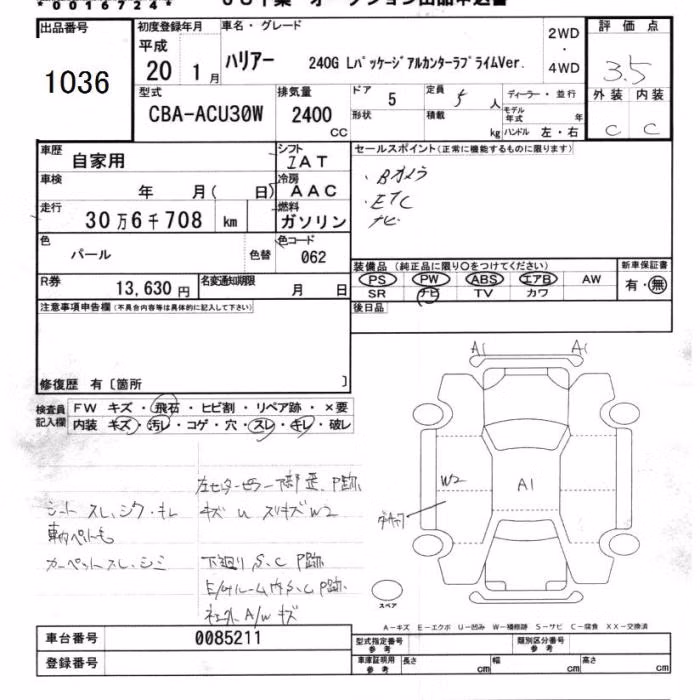 *0016724*
出品番号
1036
初度登録年月
平成
20 1月
車名・グレード
ハリアー 240G LパッケージアルカンターラプライムVer.
2WD
・
4WD
評価点
3.5
外装 内装
C C
型式
CBA-ACU30W
排気量
2400
CC
ドア 5
定員 5 人
形状
積載 kg
ディーラー・並行
モデル年式 年
ハンドル 左・右
車歴
自家用
シフト
IAT
車検
年 月( 日)
冷房
AAC
走行
30万6千708 km
燃料
ガソリン
色
パール
色替
色コード
062
R券
13,630円
名変通知期限
月 日
セールスポイント(正常に機能するものに限ります)
・Bカメラ
・ETC
ナビ
装備品 (純正品に限り○をつけてください)
PS PW ABS エアB AW
SR ナビ TV カワ
新車保証書
有・無
後日品
注意事項申告欄(不具合内容等は具体的に記入して下さい)
修復歴 有〔箇所 〕
検査員記入欄
FW キズ・飛石・ヒビ割・リペア跡・×要
内装 キズ・汚レ・コゲ・穴・スレ・キレ・破レ
左センターピラー下部歪、P跡
シート スレ、シワ・キレ
キズ U スリキズ W2
カーペットスレ、シミ
下廻りS、C P跡
E/Gルーム内S、C P跡
社外A/W キズ
A1 A1
W2
A1
スペア
A−キズ E−エクボ U−凹み W−補修跡 S−サビ C−腐食 XX−交換済
車台番号 0085211
登録番号
型式指定番号 参考
類別区分番号 参考
車庫証明用 参考
長さ cm
幅 cm
高さ cm